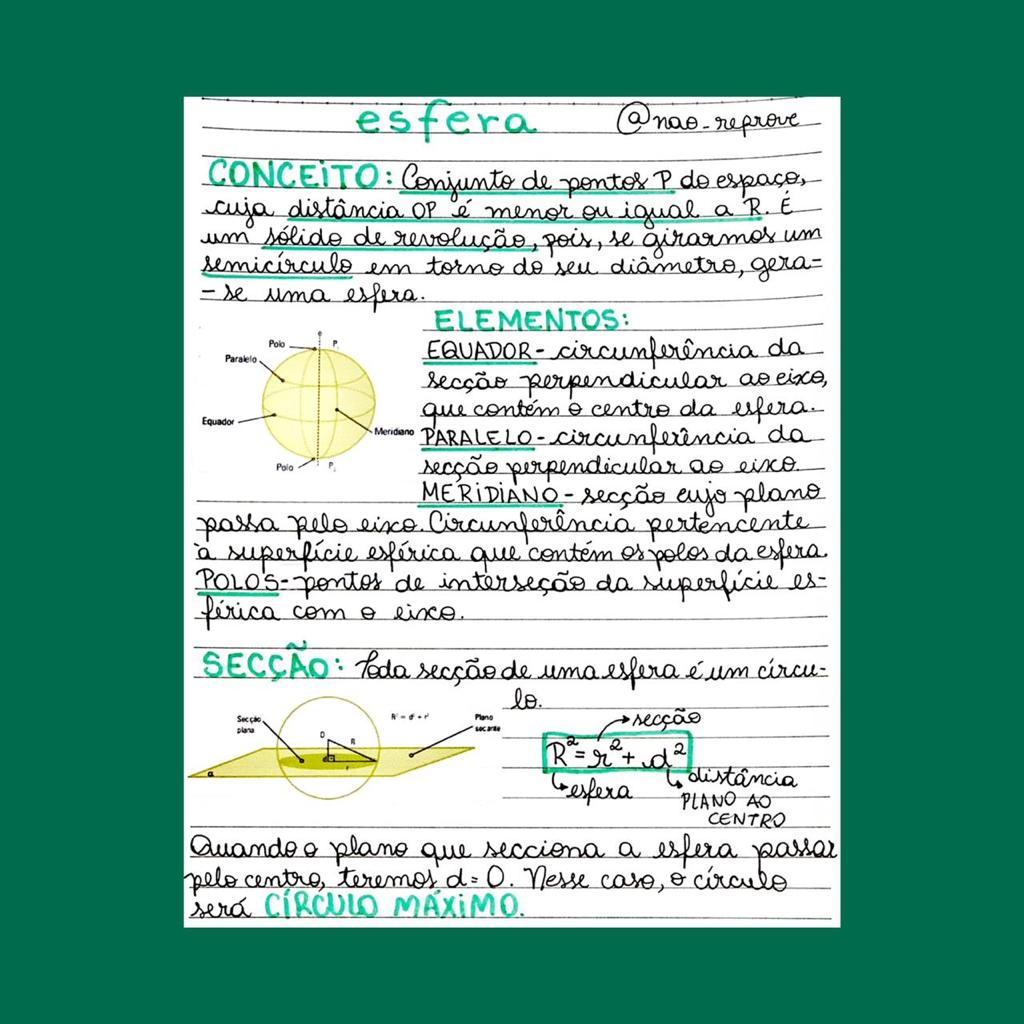 esfera @nao_reprove
CONCEITO: Conjunto de pontos P do espaço,
cuja distância OP é menor ou igual a R. É
um sólido de revolução, pois, se girarmos um
semicírculo em torno do seu diâmetro, gera-
-se uma esfera.
ELEMENTOS:
EQUADOR- circunferência da
secção perpendicular ao eixo,
que contém o centro da esfera.
PARALELO- circunferência da
secção perpendicular ao eixo.
MERIDIANO- secção cujo plano
passa pelo eixo. Circunferência pertencente
à superfície esférica que contém os polos da esfera.
POLOS- pontos de interseção da superfície es-
férica com o eixo.
e
Polo P₁
Paralelo
Equador
Meridiano
Polo P₂
SECÇÃO: Toda secção de uma esfera é um círcu-
lo.
Secção
plana
R² = d² + r²
Plano
secante
O
R
d
r
α
secção
R²= r² + d²
esfera
distância
PLANO AO
CENTRO
Quando o plano que secciona a esfera passar
pelo centro, teremos d= 0. Nesse caso, o círculo
será CÍRCULO MÁXIMO.